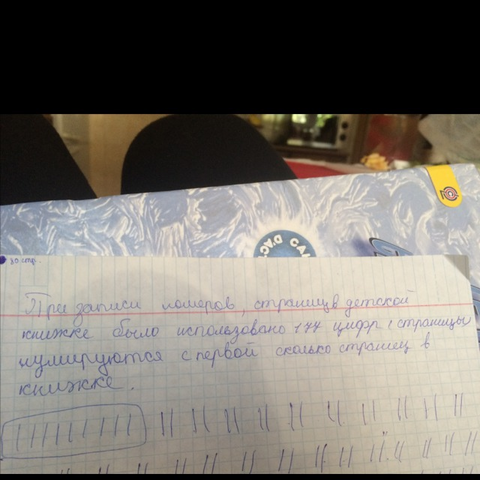 При записи номеров, страниц в детской
книжке было использовано 177 цифр (страницы
нумируются с первой сколько страниц в
книжке.